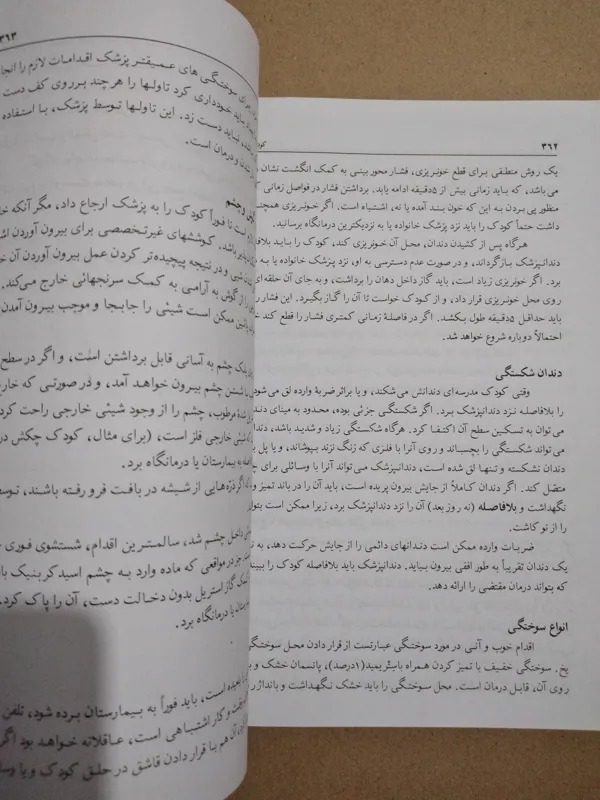 ۳۶۲
یک روش منطقی برای قطع خونریزی، فشار محور بینی به کمک انگشت نشان
می‌باشد، که باید زمانی بیش از ۵دقیقه ادامه یابد. برداشتن فشار در فواصل زمانی
منظور پی بردن به این که خون بند آمده یا نه، اشتباه است. اگر خونریزی همچنـ
داشت حتماً کودک را باید نزد پزشک خانواده یا به نزدیکترین درمانگاه برسانید.
هرگاه پس از کشیدن دندان، محل آن خونریزی کند، کودک را باید بلافا
دندانپزشک بازگرداند، و در صورت عدم دسترسی به او، نزد پزشک خانواده یا به
برد. اگر خونریزی زیاد است، باید گاز داخل دهان را برداشت، و به جای آن حلقه‌ای
روی محل خونریزی قرار داد، و از کودک خواست تا آن را گاز بگیرد. این فشار را
باید حداقل ۵دقیقه طول بکشد. اگر در فاصلهٔ زمانی کمتری فشار را قطع کند
احتمالاً دوباره شروع خواهد شد.
دندان شکستگی
وقتی کودک مدرسه‌ای دندانش می‌شکند، و یا براثر ضربهٔ وارده لق می‌شود
را بلافاصله نزد دندانپزشک برد. اگر شکستگی جزئی بوده، محدود به مینای دندا
می‌توان به تسکین سطح آن اکتفا کرد. هرگاه شکستگی زیاد و شدید باشد، دندا
می‌تواند شکستگی را بچسباند و روی آنرا با فلزی که زنگ نزند بپوشاند، و یا پل
دندان نشکسته و تنها لق شده است، دندانپزشک می‌تواند آنرا با وسائلی برای
متصل کند. اگر دندان کاملاً از جایش بیرون پریده است، باید آن را در باند تمیز و
نگهداشت و بلافاصله (نه روز بعد) آن را نزد دندانپزشک برد، زیرا ممکن است بتوا
را از نو کاشت.
ضربات وارده ممکن است دندانهای دائمی را از جایش حرکت دهد، به
یک دندان تقریباً به طور افقی بیرون بیاید. دندانپزشک باید بلافاصله کودک را ببیند
که بتواند درمان مقتضی را ارائه دهد.
انواع سوختگی
اقدام خوب و آنی در مورد سوختگی عبارتست از قرار دادن محل سوختگی
یخ. سوختگی خفیف با تمیز کردن همراه باسِتریمید(۱درصد)، پانسمان خشک و
روی آن، قابل درمان است. محل سوختگی را باید خشک نگهداشت و بانداژ
۳۶۳
برای سوختگی های عمیقتر پزشک اقدامات لازم را انجا
باید خودداری کرد تاولها را هرچند برروی کف دست
نباید دست زد. این تاولها توسط پزشک، با استفاده
شدن و درمان است.
گوش و چشم
است تا فوراً کودک را به پزشک ارجاع داد، مگر آنکه
باشد. کوششهای غیرتخصصی برای بیرون آوردن
و در نتیجه پیچیده‌تر کردن عمل بیرون آوردن آن
را از گوش به آرامی به کمک سرنجهائی خارج می‌کند.
ممکن است شیئی را جابجا و موجب بیرون آمدن
پلک چشم به آسانی قابل برداشتن است، و اگر در سطح
با شستن چشم بیرون خواهد آمد، و در صورتی که خار
مرطوب، چشم را از وجود شیئی خارجی راحت کرد
شیئی خارجی فلز است، (برای مثال، کودک چکش در
به بیمارستان یا درمانگاه برد.
اگر ذرّه‌هایی از شیشه در بافت فرو رفته باشند، توسط
داخل چشم شد، سالمترین اقدام، شستشوی فوری
جز در مواقعی که ماده وارد به چشم اسید کربنیک
گاز استریل بدون دخالت دست، آن را پاک کرد.
یا درمانگاه برد.
است، باید فوراً به بیمارستان برده شود، تلفن
و کار اشتباهی است، عاقلانه خواهد بود اگر
آن هم با قرار دادن قاشق در حلق کودک و یا